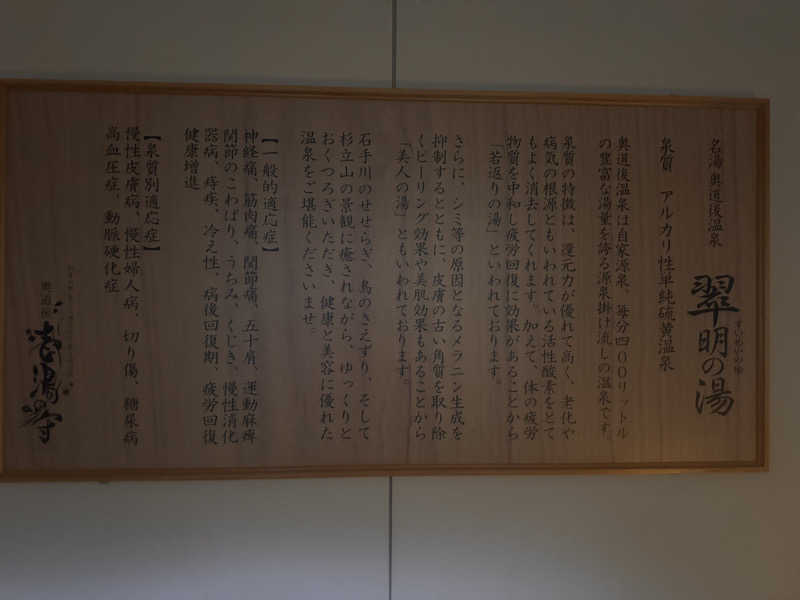 名湯 奥道後温泉
翠明の湯
すいめいのゆ
泉質　アルカリ性単純硫黄温泉
奥道後温泉は自家源泉、毎分四〇〇リットル
の豊富な湯量を誇る源泉掛け流しの温泉です。
泉質の特徴は、還元力が優れて高く、老化や
病気の根源ともいわれている活性酸素をとて
もよく消去してくれます。加えて、体の疲労
物質を中和し疲労回復に効果があることから
「若返りの湯」といわれております。
さらに、シミ等の原因となるメラニン生成を
抑制するとともに、皮膚の古い角質を取り除
くピーリング効果や美肌効果もあることから
「美人の湯」ともいわれております。
石手川のせせらぎ、鳥のさえずり、そして
杉立山の景観に癒されながら、ゆっくりと
おくつろぎいただき、健康と美容に優れた
温泉をご堪能くださいませ。
【一般的適応症】
神経痛、筋肉痛、関節痛、五十肩、運動麻痺
関節のこわばり、うちみ、くじき、慢性消化
器病、痔疾、冷え性、病後回復期、疲労回復
健康増進
【泉質別適応症】
慢性皮膚病、慢性婦人病、切り傷、糖尿病
高血圧症、動脈硬化症
奥道後
壱湯の守